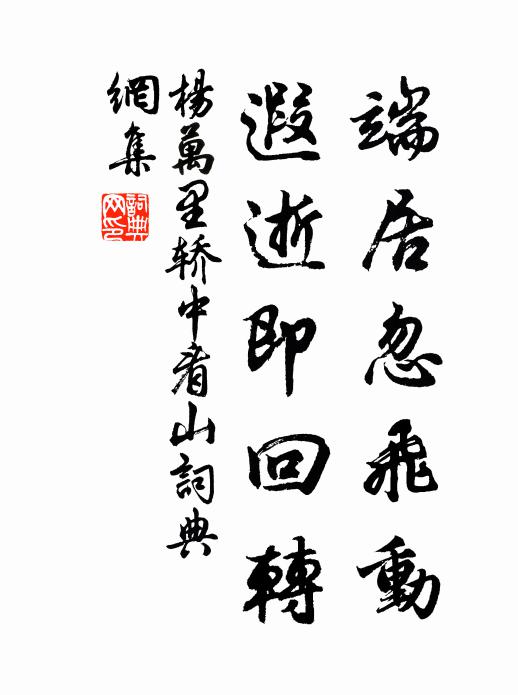 端居忽飛動
遐逝即回轉
楊萬里轿中看山詞典
網集
詞典
网印